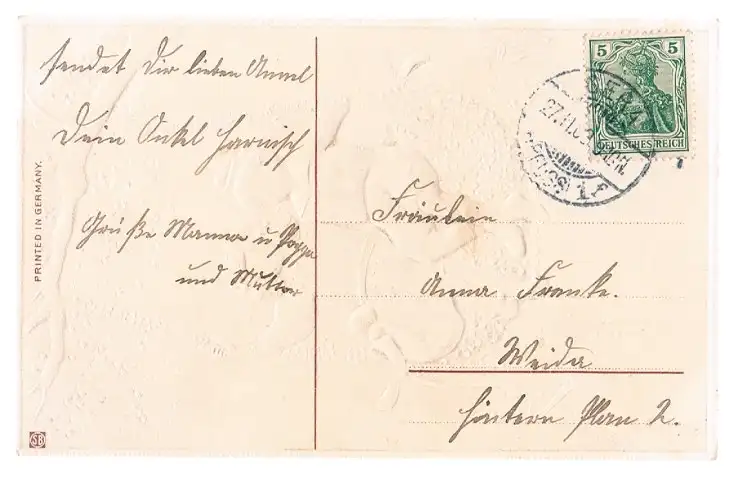 sendet Dir lieben Annel
Dein Onkel Harnisch
Grüße Mamma u Pappa
und Mutter
PRINTED IN GERMANY.
5 5
DEUTSCHES REICH
GERA
27.11.
Fräulein
Anna Franke.
Weida
hintern Plan 2.